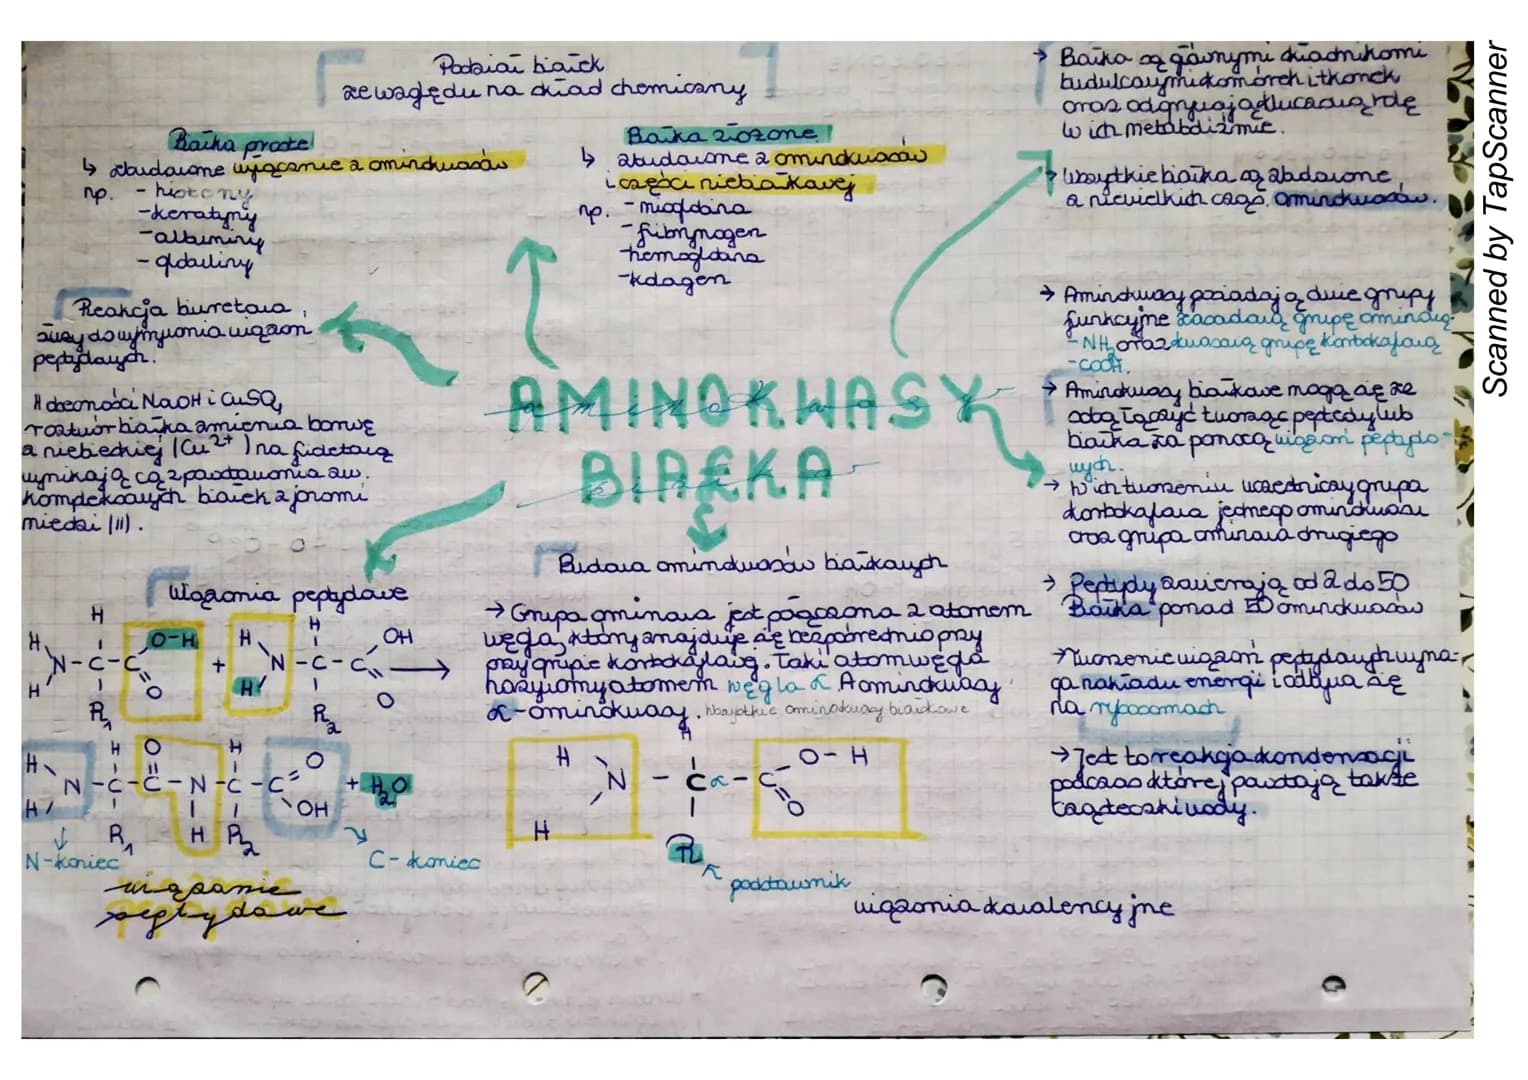 Podział białek
ze względu na skład chemiczny
Białka proste
↳ zbudowane wyłącznie z aminokwasów
np. - histony
-keratyny
-albuminy
- globuliny
Białka złożone
↳ zbudowane z aminokwasów
i części niebiałkowej
np. - mioglobina
- fibrynogen
-hemoglobina
-kolagen
Reakcja biuretowa
służy do wykrywania wiązań
peptydowych.
W obecności NaOH i CuSO₄
roztwór białka zmienia barwę
z niebieskiej (Cu²⁺) na fioletową
wynikającą z powstawania zw.
kompleksowych białek z jonami
miedzi (II).
AMINOKWASY
aminokwasy
BIAŁKA
białka
→ Białka są głównymi składnikami
budulcowymi komórek i tkanek
oraz odgrywają kluczową rolę
w ich metabolizmie.
→ Wszytkie białka są zbudowane
z niewielkich cząs. aminokwasów.
→ Aminokwasy posiadają dwie grupy
funkcyjne zasadową grupę aminową
-NH₂ oraz kwasową grupę karboksylową
-COOH.
→ Aminokwasy białkowe mogą się ze
sobą łączyć tworząc peptydy lub
białka za pomocą wiązań peptydo-
wych.
→ W ich tworzeniu uczestniczy grupa
karboksylowa jednego aminokwasu
oraz grupa aminowa drugiego
→ Peptydy zawierają od 2 do 50
Białka ponad 50 aminokwasów
→ Tworzenie wiązań peptydowych wyma-
ga nakładu energi i odbywa się
na rybosomach
→ Jest to reakcja kondensacji
podczas której powstają także
cząsteczki wody.
Wiązania peptydowe
H H
H O-H H H OH
N-C-C + N-C-C →
H O H O
R₁ R₂
H O H O
H N-C-C-N-C-C + H₂O
H R₁ H R₂ OH
N-koniec C-koniec
wiązanie
peptydowe
Budowa aminokwasów białkowych
→ Grupa aminowa jest połączona z atomem
węgla, który znajduje się bezpośrednio przy
przy grupie karboksylową. Taki atom węgla
nazywamy atomem węgla α. A aminokwasy
α-aminokwasy. Wszystkie aminokwasy białkowe
H
H O-H
N - Cα - C
H O
R
podstawnik
wiązania kowalencyjne
Scanned by TapScanner